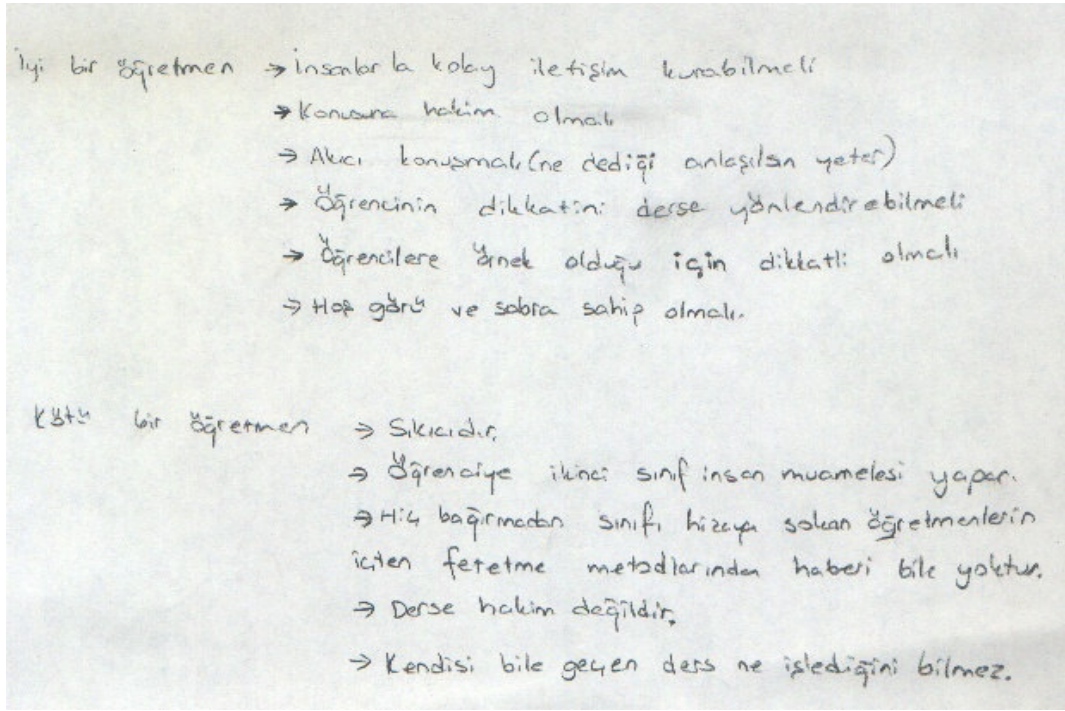 İyi bir öğretmen → insanlarla kolay iletişim kurabilmeli
→ Konusuna hakim olmalı
→ Akıcı konuşmalı (ne dediği anlaşılsın yeter)
→ Öğrencinin dikkatini derse yönlendirebilmeli
→ Öğrencilere örnek olduğu için dikkatli olmalı
→ Hoş görü ve sabra sahip olmalı.
Kötü bir öğretmen → Sıkıcıdır.
→ Öğrenciye ikinci sınıf insan muamelesi yapar.
→ Hiç bağırmadan sınıfı hizaya sokan öğretmenlerin
içten fetetme metodlarından haberi bile yoktur.
→ Derse hakim değildir.
→ Kendisi bile geçen ders ne işlediğini bilmez.